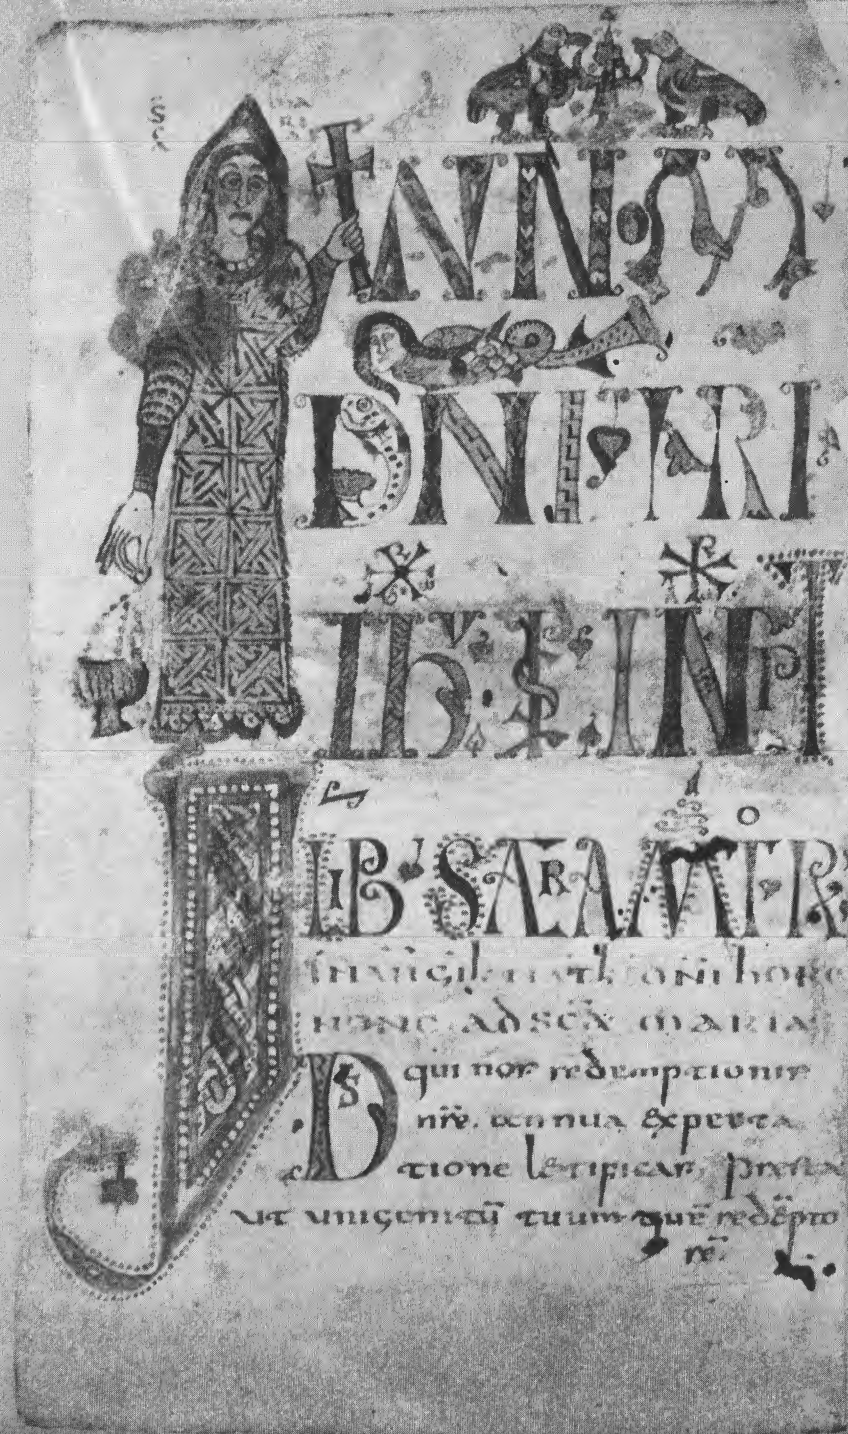 SCA MARIA
INNO M
DNI NRI
IHU XPI INCPT
LIB SACRAMTOR
IN UIGIL NAT DNI HORA
NONA AD SCA MARIA
DS qui nos redemptionis
nre annua expecta
tione letificas, presta
ut unigenitu tuum que redepto
re.